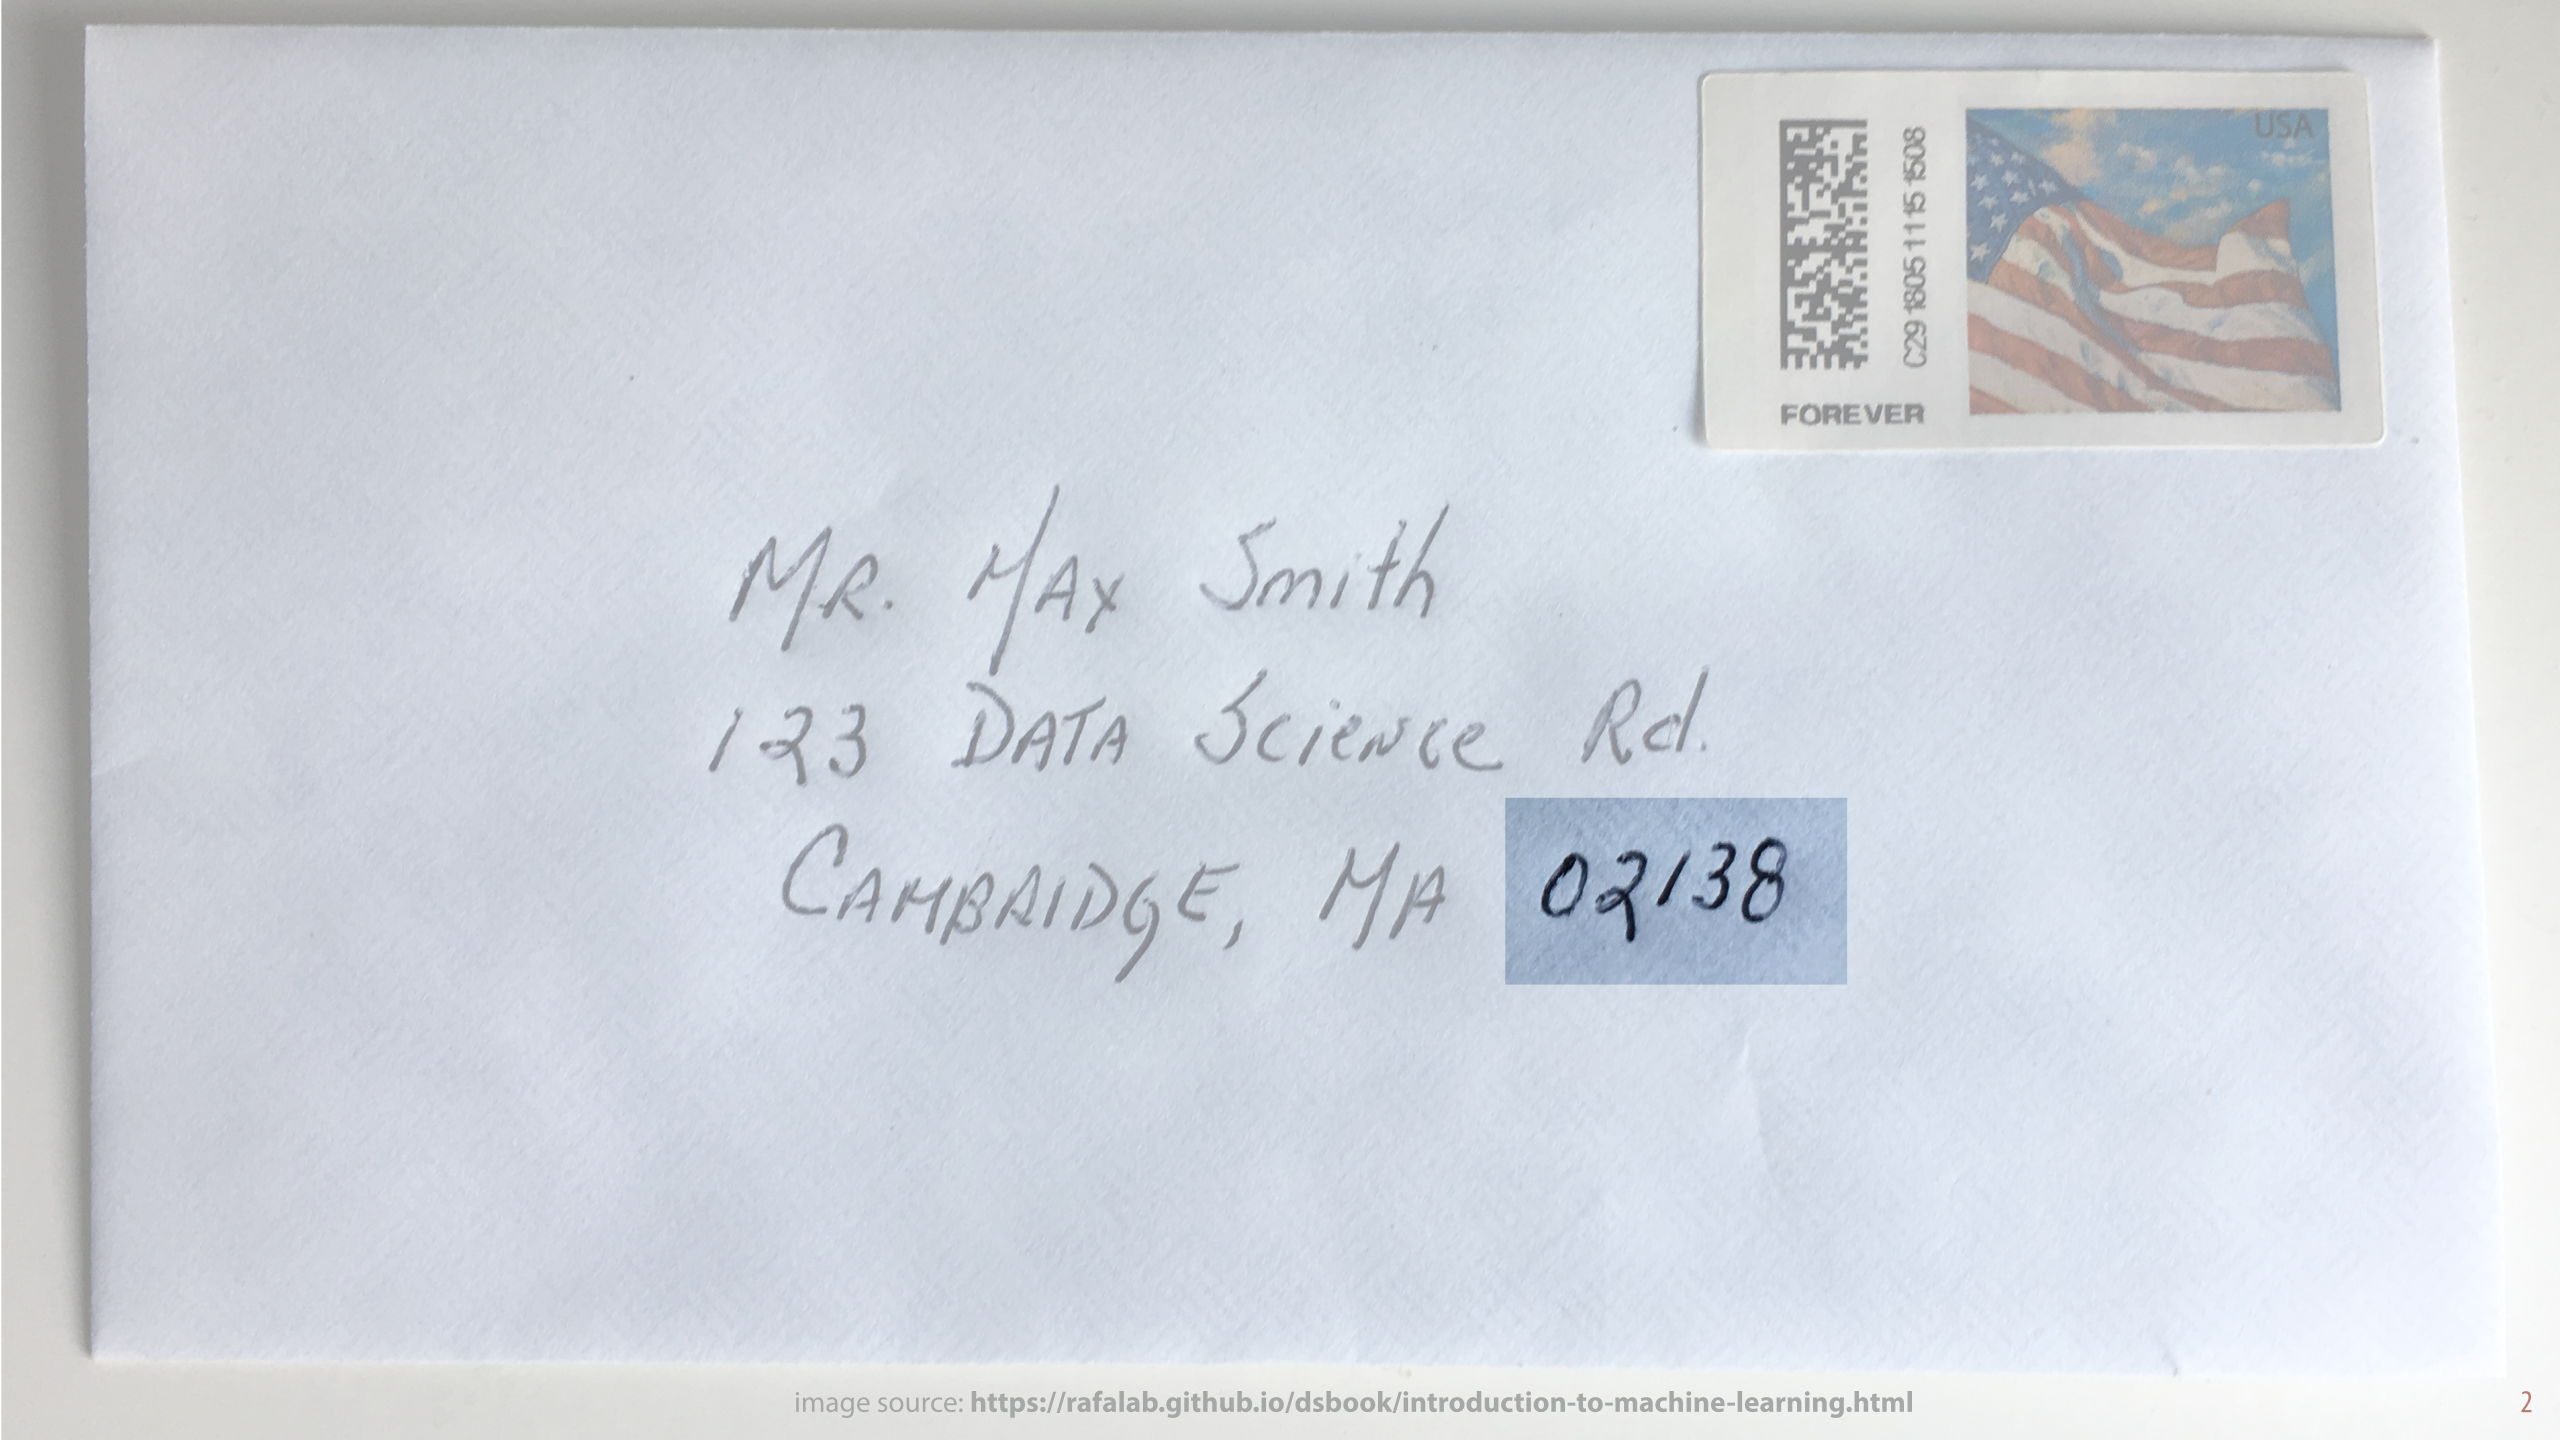 USA
C29 1805 1115 1508
FOREVER
MR. MAX Smith
123 DATA Science Rd.
CAMBRIDGE, MA 02138
image source: https://rafalab.github.io/dsbook/introduction-to-machine-learning.html
2